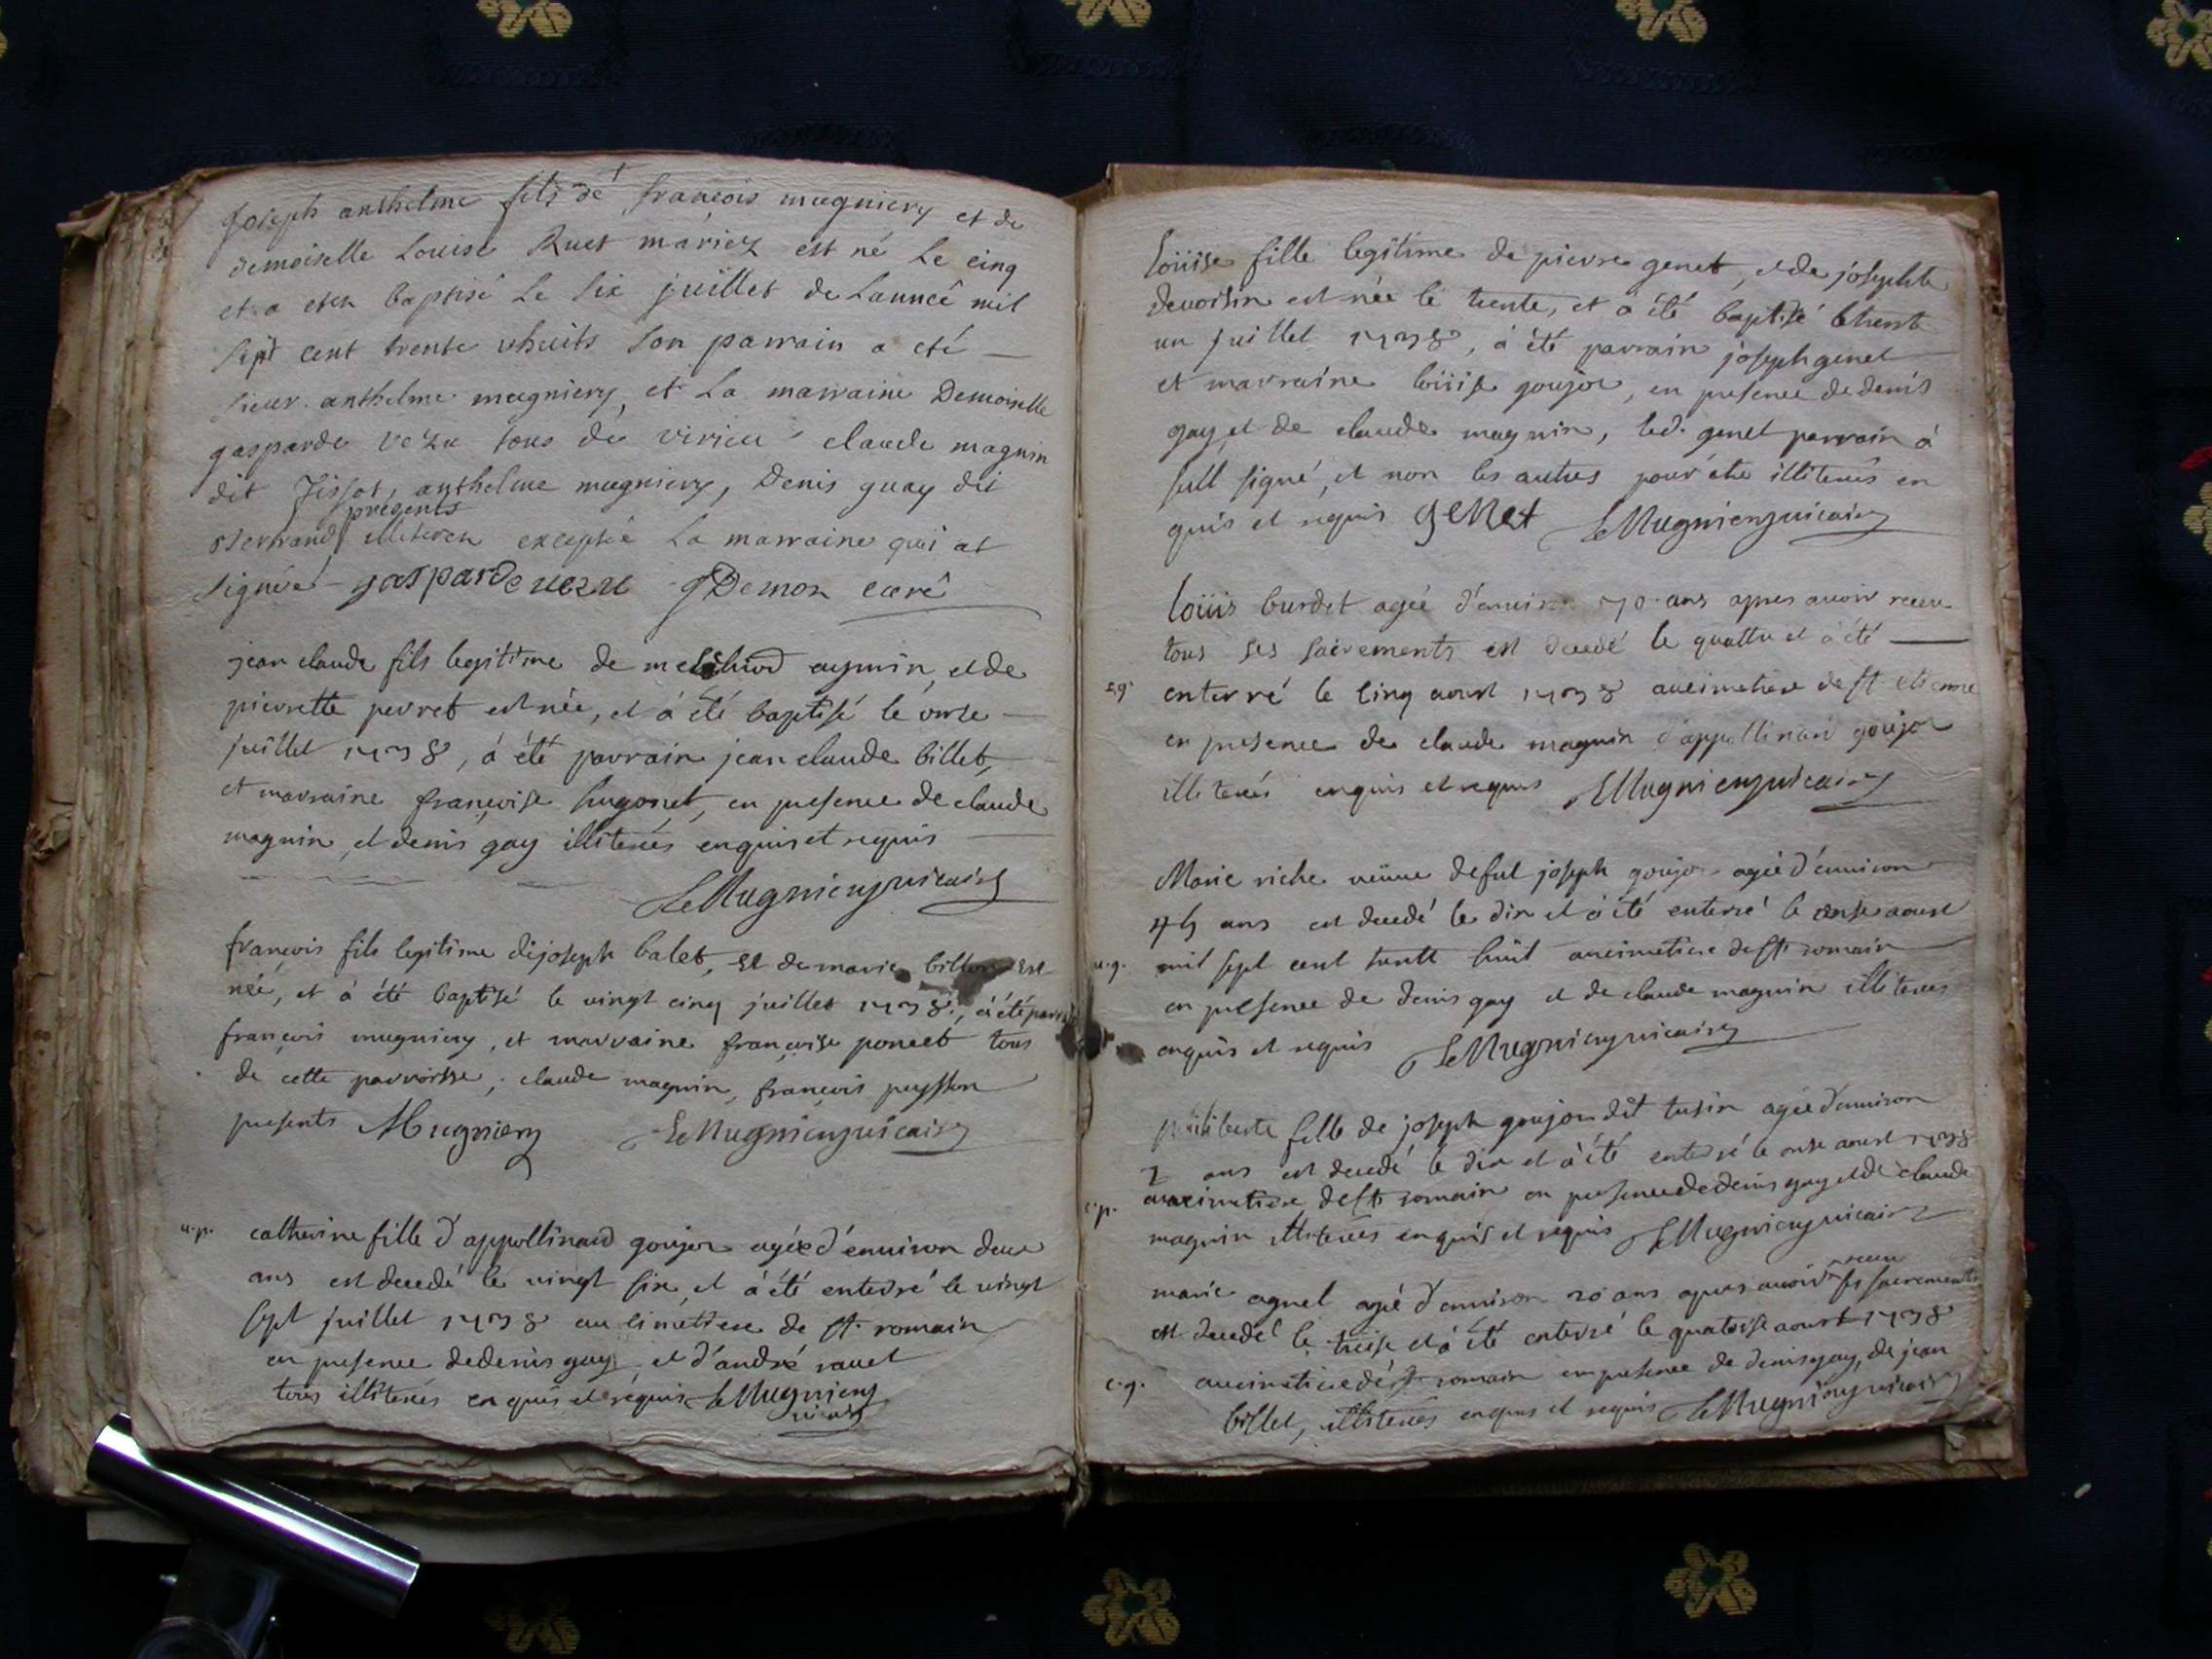 Joseph anthelme fils de françois mugniery et de
demoiselle Louise Ruet mariez est né le cinq
et a esté baptisé le six juillet de Lanneé mil
sept cent trente uhuits son parrain a eté
sieur anthelme mugniery, et La marraine Demoiselle
gasparde vezu tous de virieu claude magnin
dit Tissot, anthelme mugniery, Denis guay dit
presents
Bertrand illiterez exceptée La marraine qui at
signée gasparde uezu Demon curé
jean claude fils legitime de melchiod aymin, et de
pierrette perret est née, et à été baptisé le onse
juillet 1738, à été parrain jean claude billet,
et marraine françoise hugonet, en presence de claude
magnin, et denis gay illiterés enquis et requis
LeMugniery vicaire
françois fils legitime de joseph balet, et de marie billon est
née, et à été baptisé le vingt cinq juillet 1738, à été parrain
françois mugniery, et marraine françoise poncet tous
de cette parroisse, claude magnin, françois peysson
presents Mugniery LeMugniery vicaire
u.p. catherine fille d'appollinard goujon agée d'enuiron deux
ans est decedé le vingt six, et à été enterré le vingt
sept juillet 1738 au cimetiere de st. romain
en presence de denis gay, et d'andré rauet
tous illiterés enquis et requis LeMugniery
vicaire
loüise fille legitime de pierre genet, et de josephte
deuoisin est née le trente, et à été baptisé le trent
un juillet 1738, à été parrain joseph genet
et marraine loüise goujon, en presence de denis
gay, et de claude magnin, led. genet parrain à
sull signé, et non les autres pour être illiterés en
quis et requis genet LeMugniery vicaire
loüis burdet agée d'enuiron 70 ans apres auoir receu
tous ses sacrements est decedé le quattre et à été
enterré le cinq aoust 1738 au cimetiere de st etienne
en presence de claude magnin d'appollinard goujon
illiterés enquis et requis LeMugniery vicaire
Marie riche veüue de fut joseph goujon agée d'enuiron
45 ans est decedé le dix et à été enterré le onse aoust
u.g. mil sept cent trente huit au cimetiere de st romain
en presence de denis gay et de claude magnin illiterés
enquis et requis LeMugniery vicaire
philiberte fille de joseph goujon dit tusin agée d'enuiron
2 ans est decedé le dix et à été enterré le onse aoust 1738
c.p. au cimetiere de st romain en presence de denis gay et de claude
magnin illiterés enquis et requis LeMugniery vicaire
receu
marie agnel agée d'enuiron 20 ans apres auoir ses sacrements
est decedé le treise et à été enterré le quatorse aoust 1738
c.g. au cimetiere de st romain en presence de denis gay, de jean
billet, illiterés enquis et requis LeMugniery vicaire